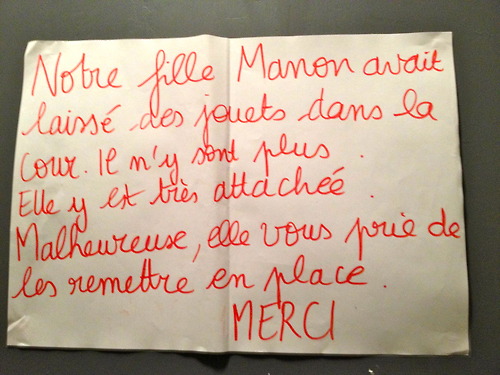 Notre fille Manon avait
laissé des jouets dans la
cour. Il n'y sont plus.
Elle y est très attachée.
Malheureuse, elle vous prie de
les remettre en place.
MERCI